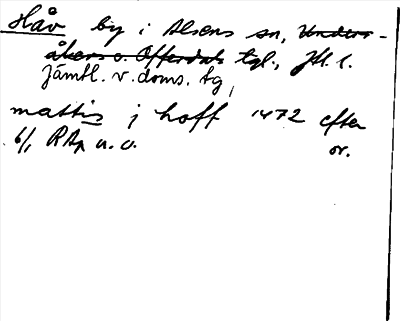 Håv by i Alsens sn, Under-
åkers o. Offerdals tgl., Jtl. l.
Jämtl. v. doms. tg,
mattis j hoff 1472 efter
6/1 RAp a. o. or.